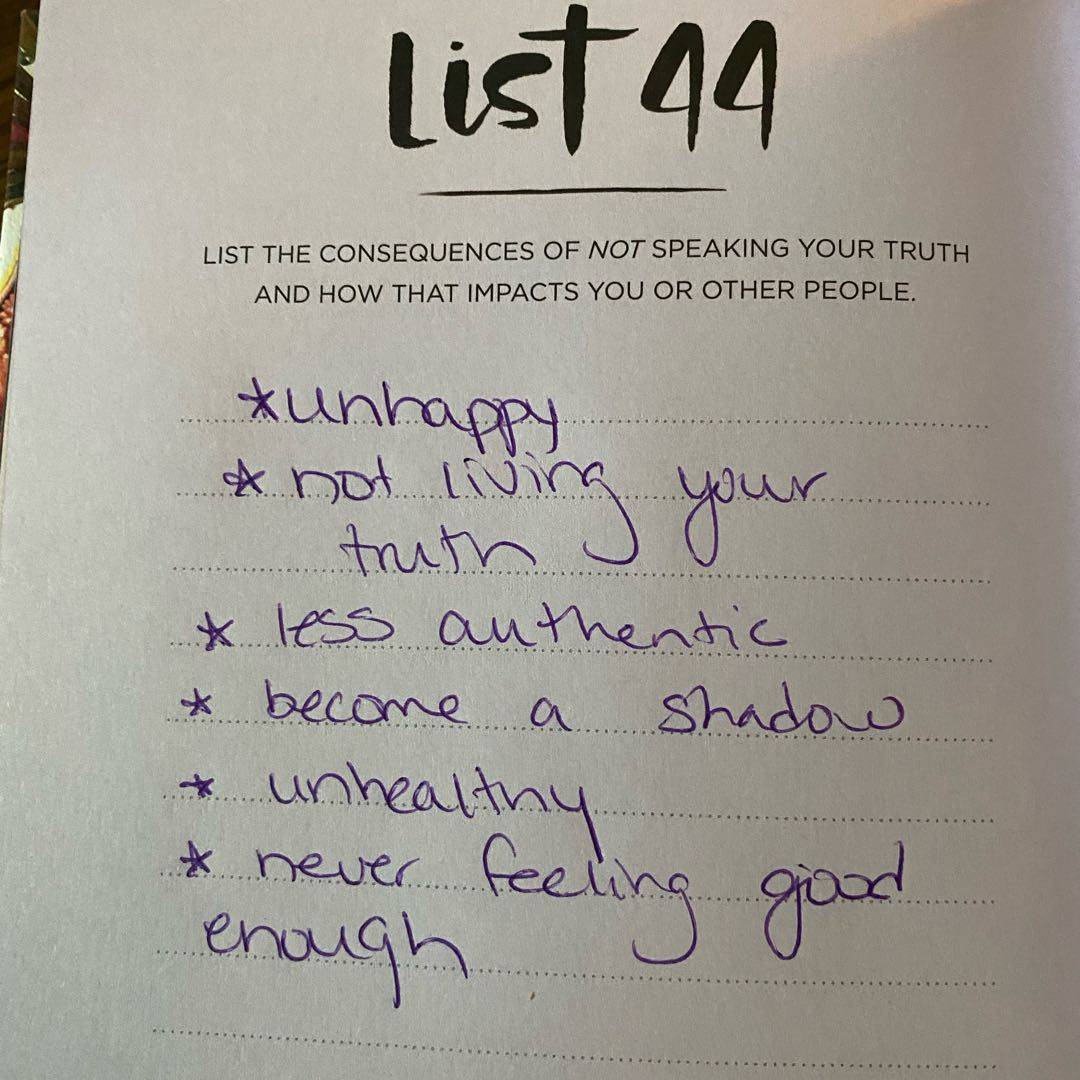 List 44
LIST THE CONSEQUENCES OF NOT SPEAKING YOUR TRUTH
AND HOW THAT IMPACTS YOU OR OTHER PEOPLE.
*unhappy
* not living your
truth
* less authentic
* become a shadow
* unhealthy
* never feeling good
enough